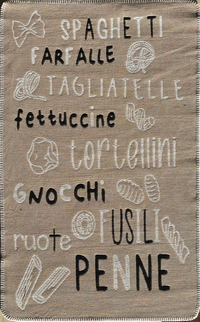 SPAGHETTI
FARFALLE
TAGLIATELLE
fettuccine
tortellini
GNOCCHI
FUSILI
ruote
PENNE